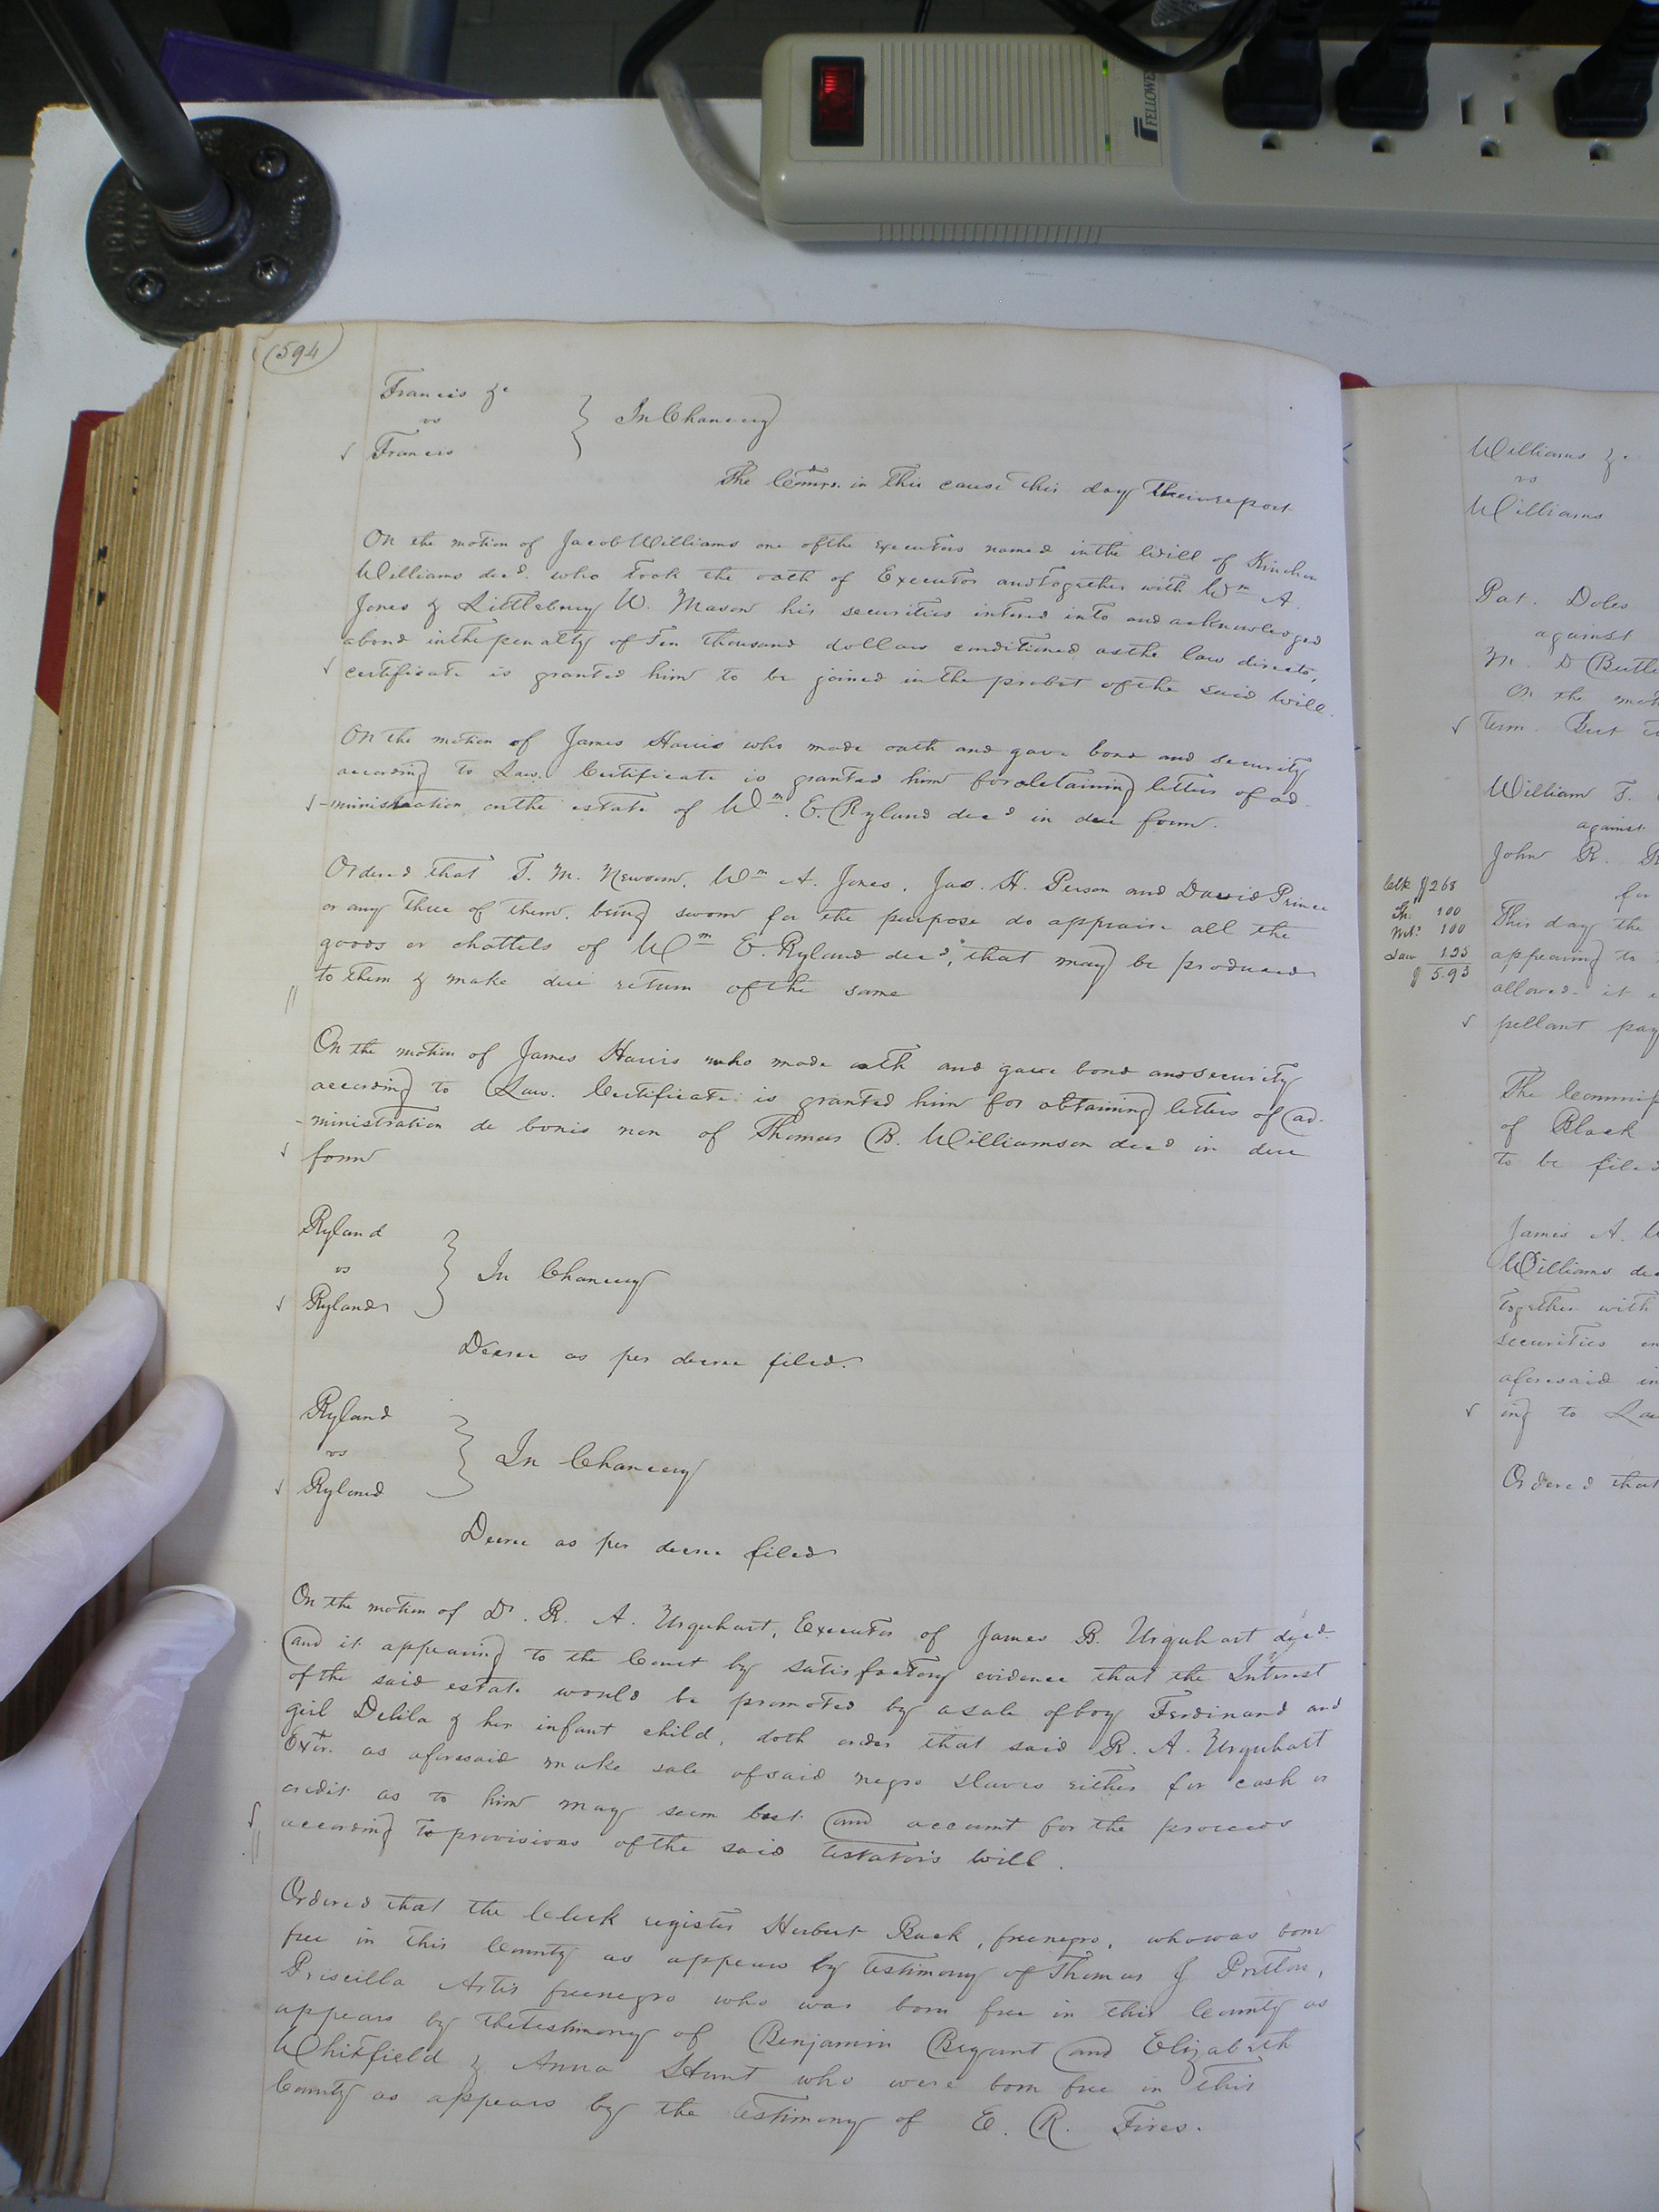 FELLOWE
(594)
Francis &c
vs
Francis
In Chancery
The Comrs. in this cause this day their report
On the motion of Jacob Williams one of the executors named in the Will of Kinchen
Williams decd. who took the oath of Executor and together with Wm A.
Jones & Littlebury W. Mason his securities intered into and acknowledged
a bond in the penalty of Ten thousand dollars conditioned as the law directs,
certificate is granted him to be joined in the probat of the said Will.
On the motion of James Harris who made oath and gave bond and security
according to Law. Certificate is granted him for obtaining letters of ad
-ministration on the estate of Wm. E. Ryland decd in due form.
Ordered that T. M. Newsom, Wm A. Jones, Jas. H. Person and David Prince
or any three of them, being sworn for the purpose do appraise all the
goods or chattels of Wm E. Ryland decd, that may be produced
to them & make due return of the same
On the motion of James Harris who made oath and gave bond and security
according to Law. Certificate is granted him for obtaining letters of ad-
-ministration de bonis non of Thomas B. Williamson decd in due
form
Ryland
vs
Ryland
In Chancery
Decree as per decree filed.
Ryland
vs
Ryland
In Chancery
Decree as per decree filed
On the motion of Dr. R. A. Urquhart, Executor of James B. Urquhart decd.
and it appearing to the Court by satisfactory evidence that the Interest
of the said estate would be promoted by a sale of boy Ferdinand and
girl Delila & her infant child, doth order that said R. A. Urquhart
Extr. as aforesaid make sale of said negro slaves either for cash or
credit as to him may seem best and account for the proceeds
according to provisions of the said testators will.
Ordered that the Clerk register Herbert free negro, who was born
free in this County as appears by testimony of Thomas J
Priscilla Artis free negro who was born free in this County as
appears by the testimony of Benjamin Bryant and Elizabeth
Whitfield & Anna Hunt who were born free in this
County as appears by the testimony of E. R.
Williams &c
vs
Williams
Pat. Doles
against
M. D Butle
On the mot
Term. But
William T.
against
John R. R
for
Clk $268
Sh. 100
100
Law 1.25
$ 5.93
This day the
appearing to
allowed. it
pellant pay
The Commis
of Black
to be filed
James A. W
Williams de
together with
securities en
aforesaid in
ing to La
Ordered that